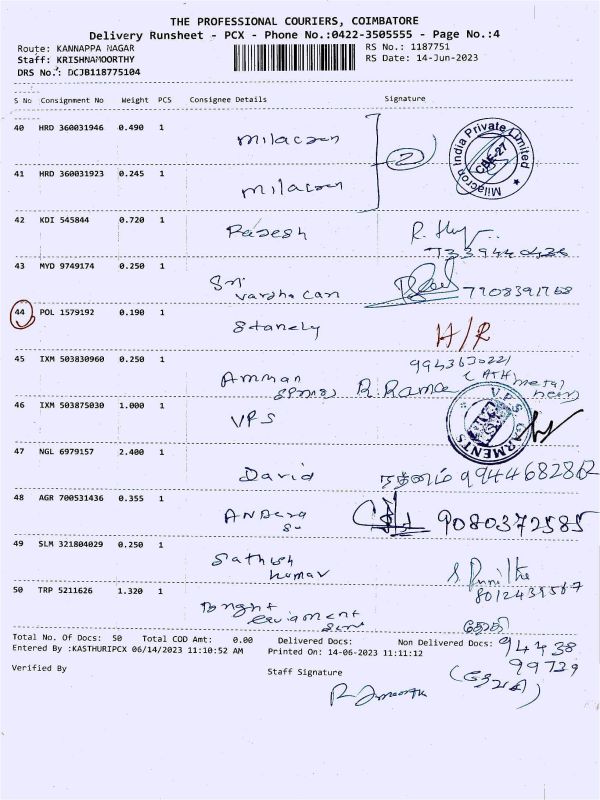 THE PROFESSIONAL COURIERS, COIMBATORE
Delivery Runsheet - PCX - Phone No.:0422-3505555 - Page No.:4
Route: KANNAPPA NAGAR
RS No.: 1187751
Staff: KRISHNAMOORTHY
RS Date: 14-Jun-2023
DRS No.: DCJB118775104
S No Consignment No Weight PCS Consignee Details Signature
40 HRD 360031946 0.490 1
milacron
2
Milacron India Private Limited
CBE-27
41 HRD 360031923 0.245 1
milacron
42 KDI 545844 0.720 1
Rajesh
43 MYD 9749174 0.250 1
Sri
7708391768
44 POL 1579192 0.190 1
Stanely
H/R
45 IXM 503830960 0.250 1
Amman
R. Rama
46 IXM 503875030 1.000 1
VPS
V.P.S. GARMENTS
47 NGL 6979157 2.400 1
David
9944682862
48 AGR 700531436 0.355 1
9080372585
49 SLM 321804029 0.250 1
Sathish
kumar
8012439567
50 TRP 5211626 1.320 1
Bright
Total No. Of Docs: 50 Total COD Amt: 0.00 Delivered Docs: Non Delivered Docs:
94438
Entered By :KASTHURIPCX 06/14/2023 11:10:52 AM Printed On: 14-06-2023 11:11:12
99739
Verified By
Staff Signature